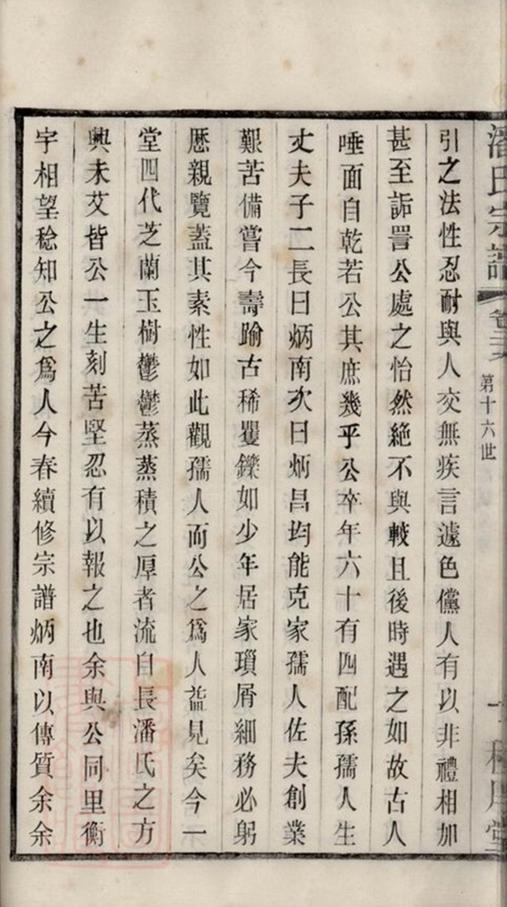 潘氏宗譜
卷三 第十六世
引之法性忍耐與人交無疾言遽色儻人有以非禮相加
甚至詬詈公處之怡然絶不與較且後時遇之如故古人
唾面自乾若公其庶幾乎公卒年六十有四配孫孺人生
丈夫子二長曰炳南次曰炳昌均能克家孺人佐夫創業
艱苦備嘗今壽踰古稀矍鑠如少年居家瑣屑細務必躬
歷親覽蓋其素性如此觀孺人而公之爲人益見矣今一
堂四代芝蘭玉樹鬱鬱蒸蒸積之厚者流自長潘氏之方
興未艾皆公一生刻苦堅忍有以報之也余與公同里衡
宇相望稔知公之爲人今春續修宗譜炳南以傳質余余